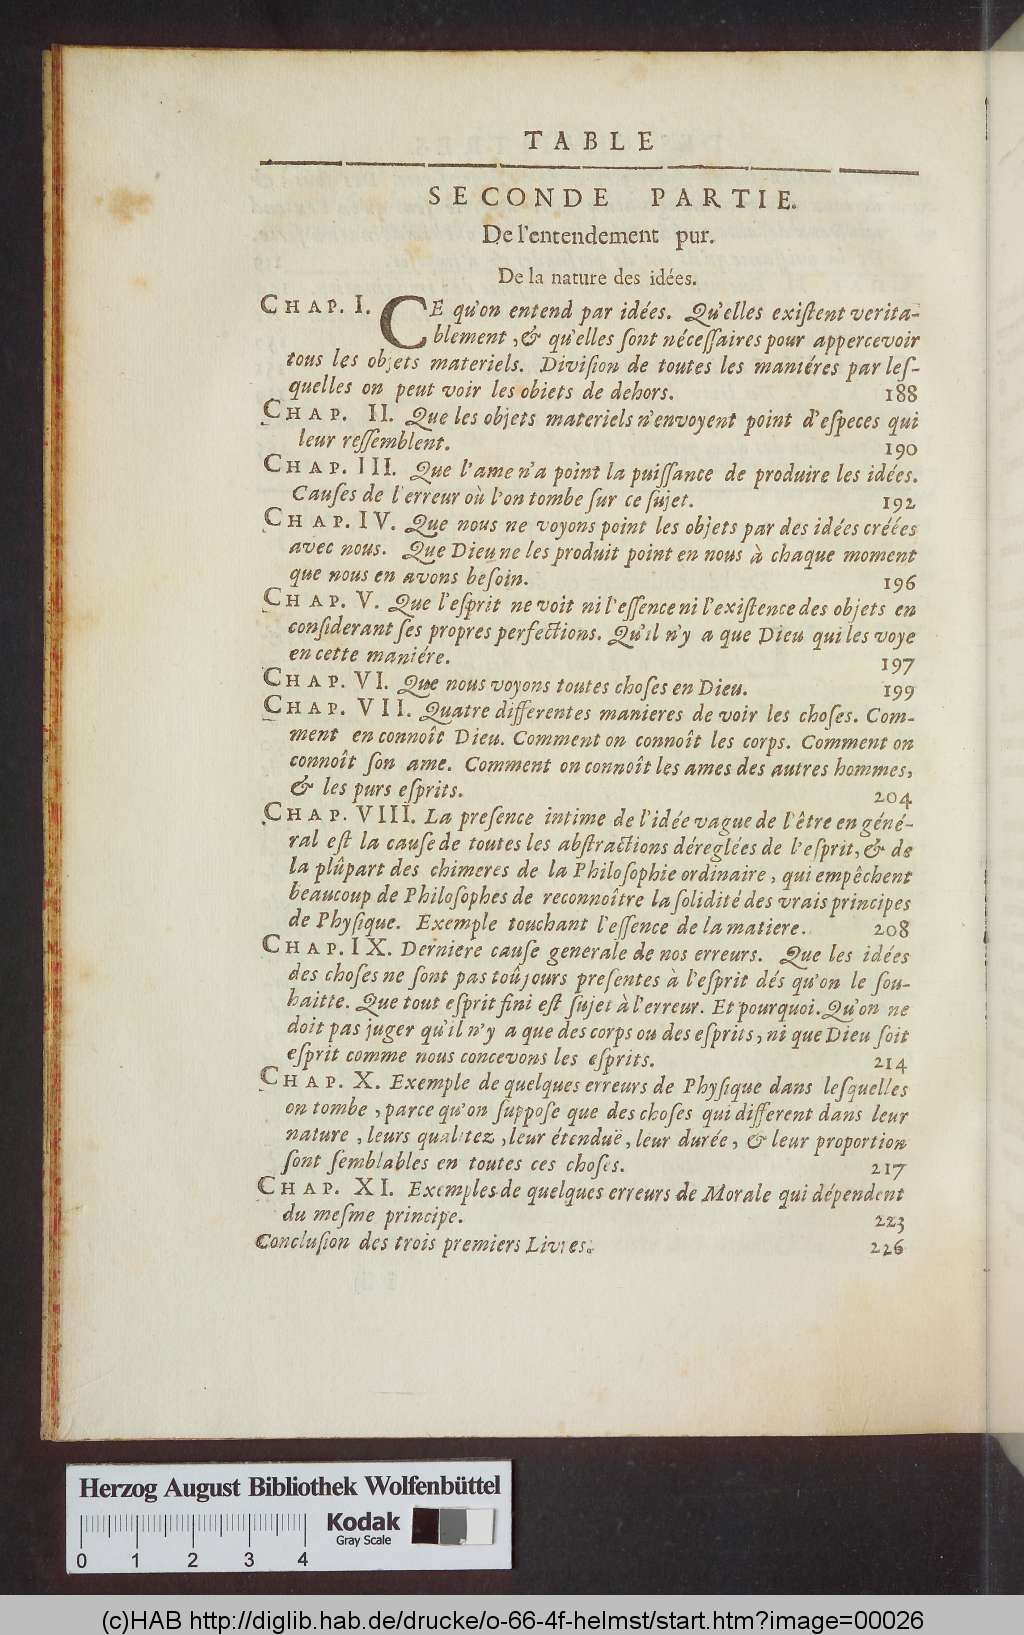 TABLE
SECONDE PARTIE.
De l'entendement pur.
De la nature des idées.
CHAP. I. CE qu'on entend par idées. Qu'elles exiſtent verita-
blement, & qu'elles ſont néceſſaires pour appercevoir
tous les objets materiels. Diviſion de toutes les maniéres par leſ-
quelles on peut voir les obiets de dehors. 188
CHAP. II. Que les objets materiels n'envoyent point d'eſpeces qui
leur reſſemblent. 190
CHAP. III. Que l'ame n'a point la puiſſance de produire les idées.
Cauſes de l'erreur où l'on tombe ſur ce ſujet. 192
CHAP. IV. Que nous ne voyons point les objets par des idées créées
avec nous. Que Dieu ne les produit point en nous à chaque moment
que nous en avons beſoin. 196
CHAP. V. Que l'eſprit ne voit ni l'eſſence ni l'exiſtence des objets en
conſiderant ſes propres perfections. Qu'il n'y a que Dieu qui les voye
en cette maniére. 197
CHAP. VI. Que nous voyons toutes choſes en Dieu. 199
CHAP. VII. Quatre differentes manieres de voir les choſes. Com-
ment en connoît Dieu. Comment on connoît les corps. Comment on
connoît ſon ame. Comment on connoît les ames des autres hommes,
& les purs eſprits. 204
CHAP. VIII. La preſence intime de l'idée vague de l'être en géné-
ral eſt la cauſe de toutes les abſtractions déreglées de l'eſprit, & de
la plûpart des chimeres de la Philoſophie ordinaire, qui empêchent
beaucoup de Philoſophes de reconnoître la ſolidité des vrais principes
de Phyſique. Exemple touchant l'eſſence de la matiere. 208
CHAP. IX. Derniere cauſe generale de nos erreurs. Que les idées
des choſes ne ſont pas toûjours preſentes à l'eſprit dés qu'on le ſou-
haitte. Que tout eſprit fini eſt ſujet à l'erreur. Et pourquoi. Qu'on ne
doit pas juger qu'il n'y a que des corps ou des eſprits, ni que Dieu ſoit
eſprit comme nous concevons les eſprits. 214
CHAP. X. Exemple de quelques erreurs de Phyſique dans leſquelles
on tombe, parce qu'on ſuppoſe que des choſes qui different dans leur
nature, leurs qualitez, leur étenduë, leur durée, & leur proportion
ſont ſemblables en toutes ces choſes. 217
CHAP. XI. Exemples de quelques erreurs de Morale qui dépendent
du meſme principe. 223
Concluſion des trois premiers Livres. 226
Herzog August Bibliothek Wolfenbüttel
Kodak
Gray Scale
0 1 2 3 4
(c)HAB http://diglib.hab.de/drucke/o-66-4f-helmst/start.htm?image=00026